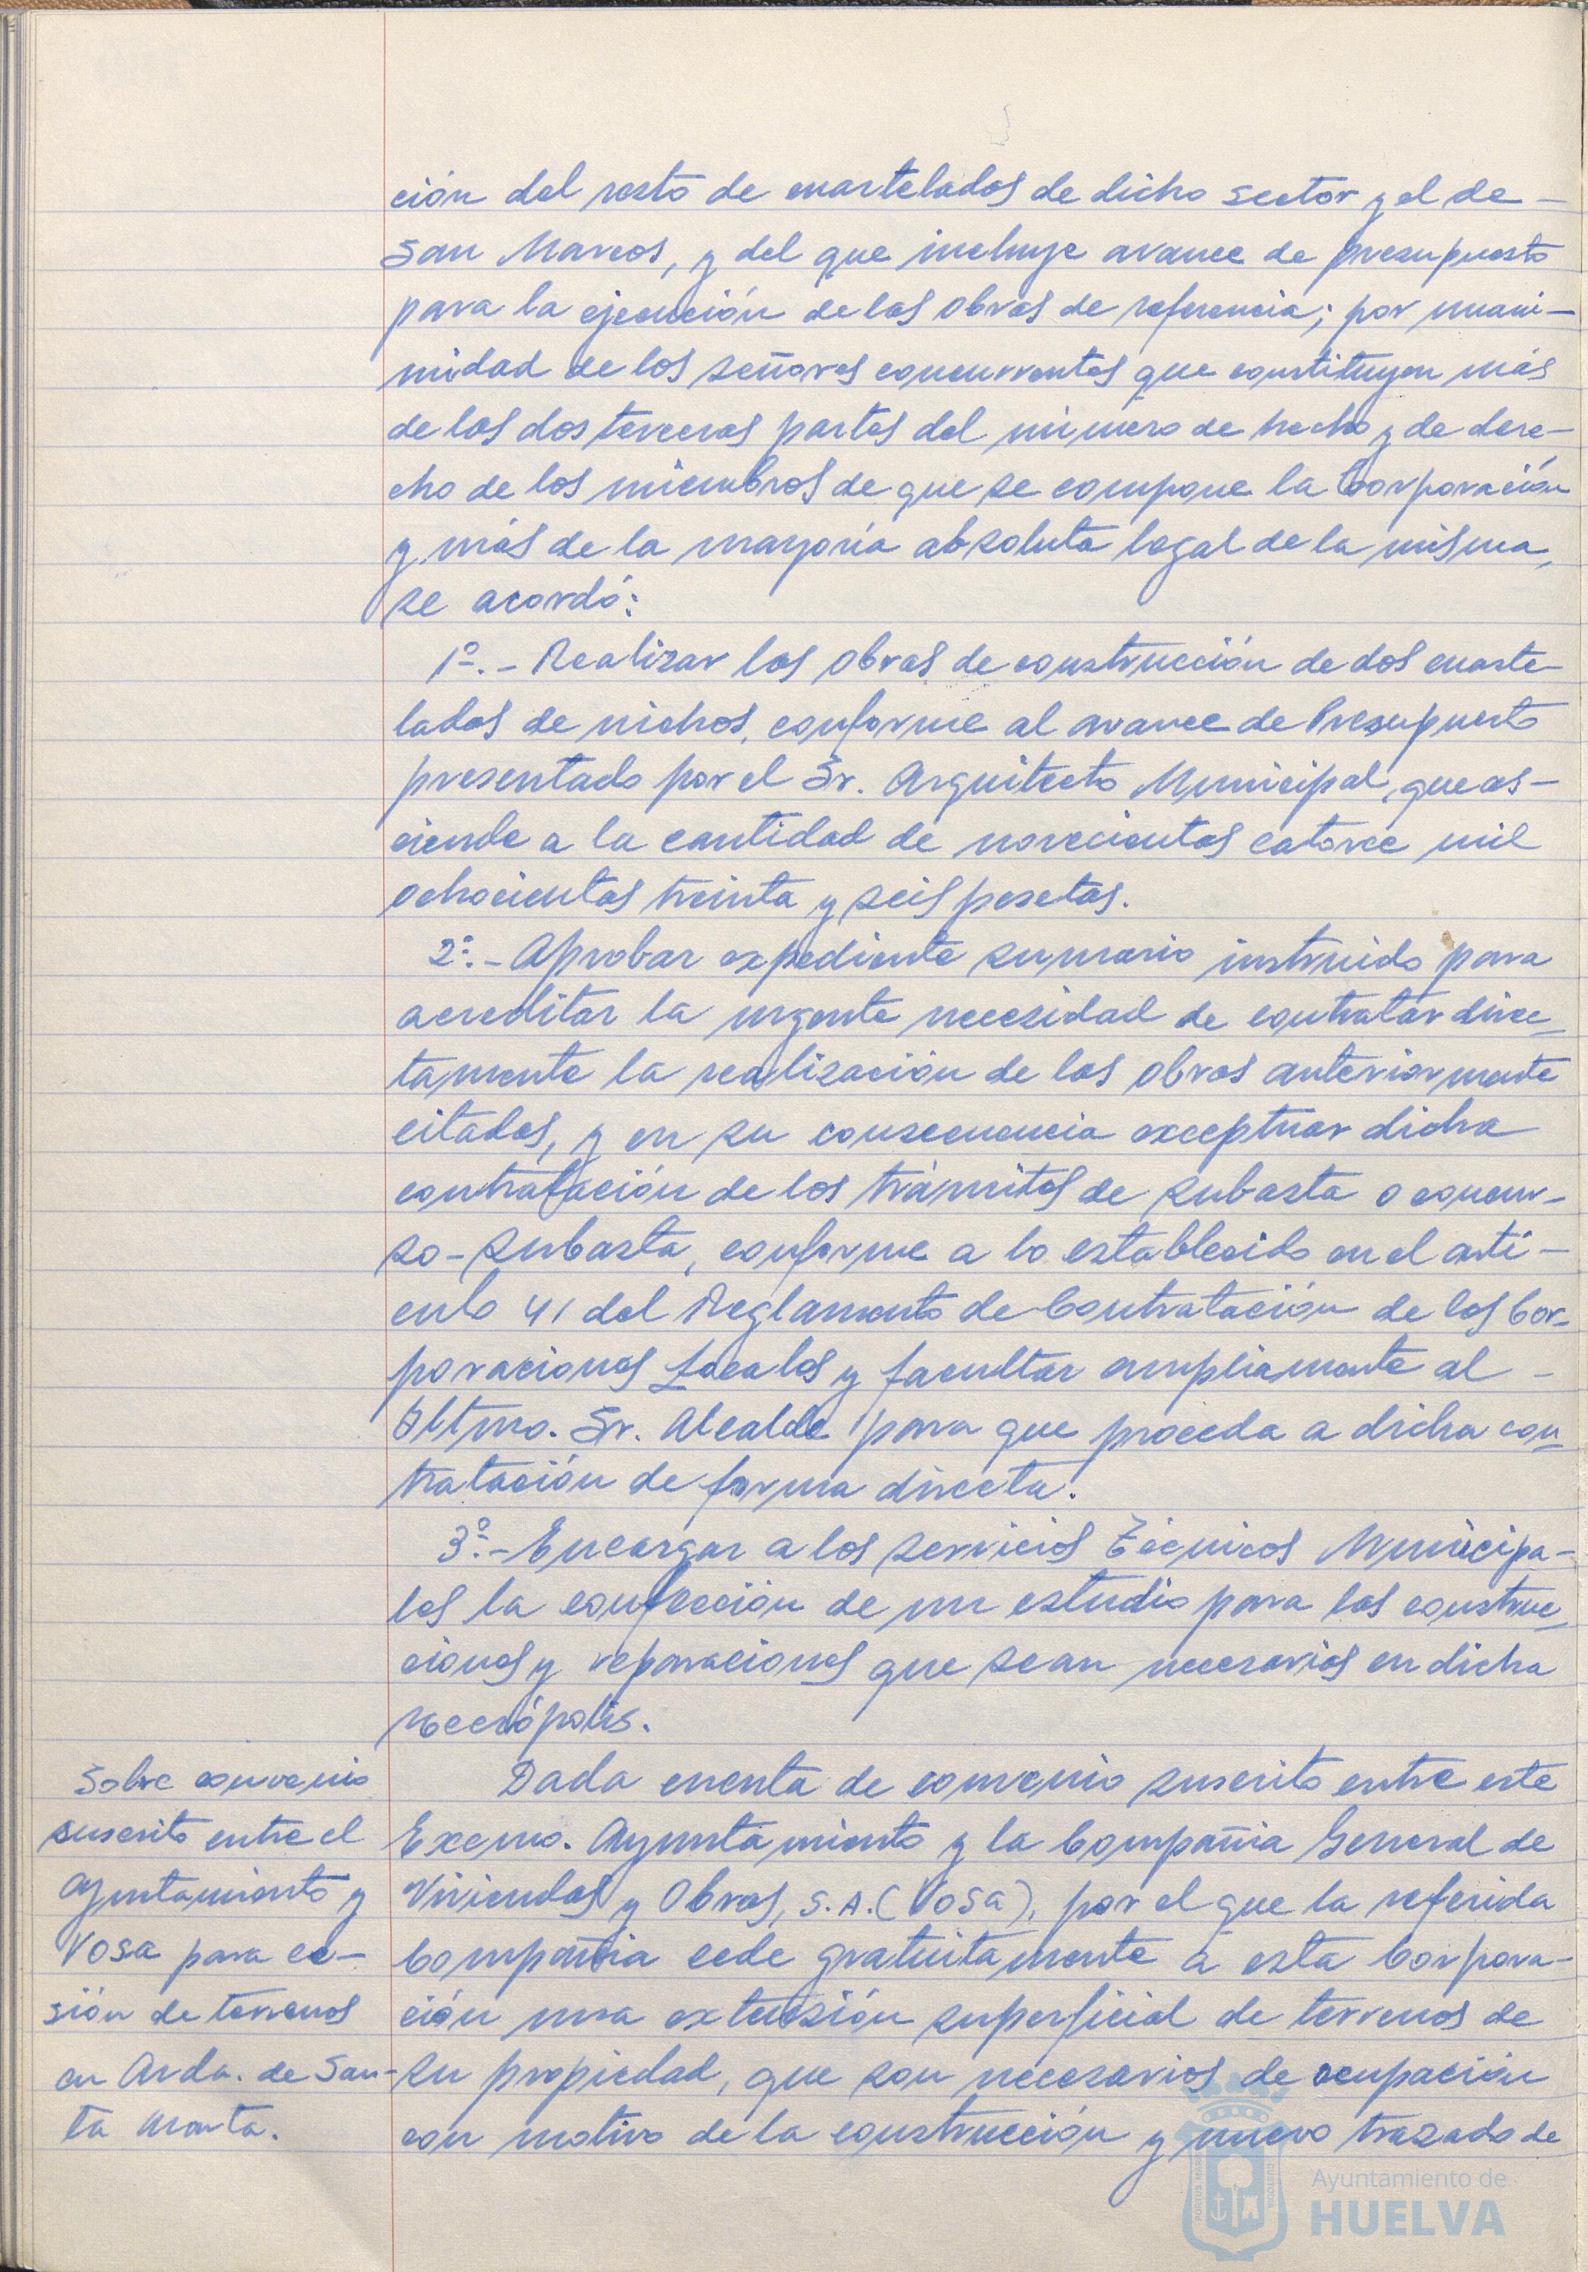 ción del resto de cuartelados de dicho sector y el de -
San Marcos, y del que incluye avance de presupuesto
para la ejecución de las obras de referencia; por unani-
midad de los señores concurrentes que constituyen más
de las dos terceras partes del número de hecho y de dere-
cho de los miembros de que se compone la Corporación
y más de la mayoría absoluta legal de la misma,
se acordó:
1º.- Realizar las obras de construcción de dos cuarte-
lados de nichos, conforme al avance de Presupuesto
presentado por el Sr. Arquitecto Municipal, que as-
ciende a la cantidad de novecientas catorce mil
ochocientas treinta y seis pesetas.
2º.- Aprobar expediente sumario instruido para
acreditar la urgente necesidad de contratar direc-
tamente la realización de las obras anteriormente
citadas, y en su consecuencia exceptuar dicha
contratación de los trámites de subasta o concur-
so-subasta, conforme a lo establecido en el artí-
culo 41 del Reglamento de Contratación de las Cor-
poraciones Locales y facultar ampliamente al -
Iltmo. Sr. Alcalde para que proceda a dicha con-
tratación de forma directa.
3º.- Encargar a los servicios Técnicos Municipa-
les la confección de un estudio para las construc-
ciones y reparaciones que sean necesarias en dicha
Necrópolis.
Sobre convenio
suscrito entre el
Ayuntamiento y
Vosa para ce-
sión de terrenos
en Avda. de San-
ta Marta.
Dada cuenta de convenio suscrito entre este
Excmo. Ayuntamiento y la Compañía General de
Viviendas y Obras, S.A. (Vosa), por el que la referida
Compañía cede gratuitamente a esta Corpora-
ción una extensión superficial de terrenos de
su propiedad, que son necesarios de ocupación
con motivo de la construcción y nuevo trazado de
Ayuntamiento de
HUELVA